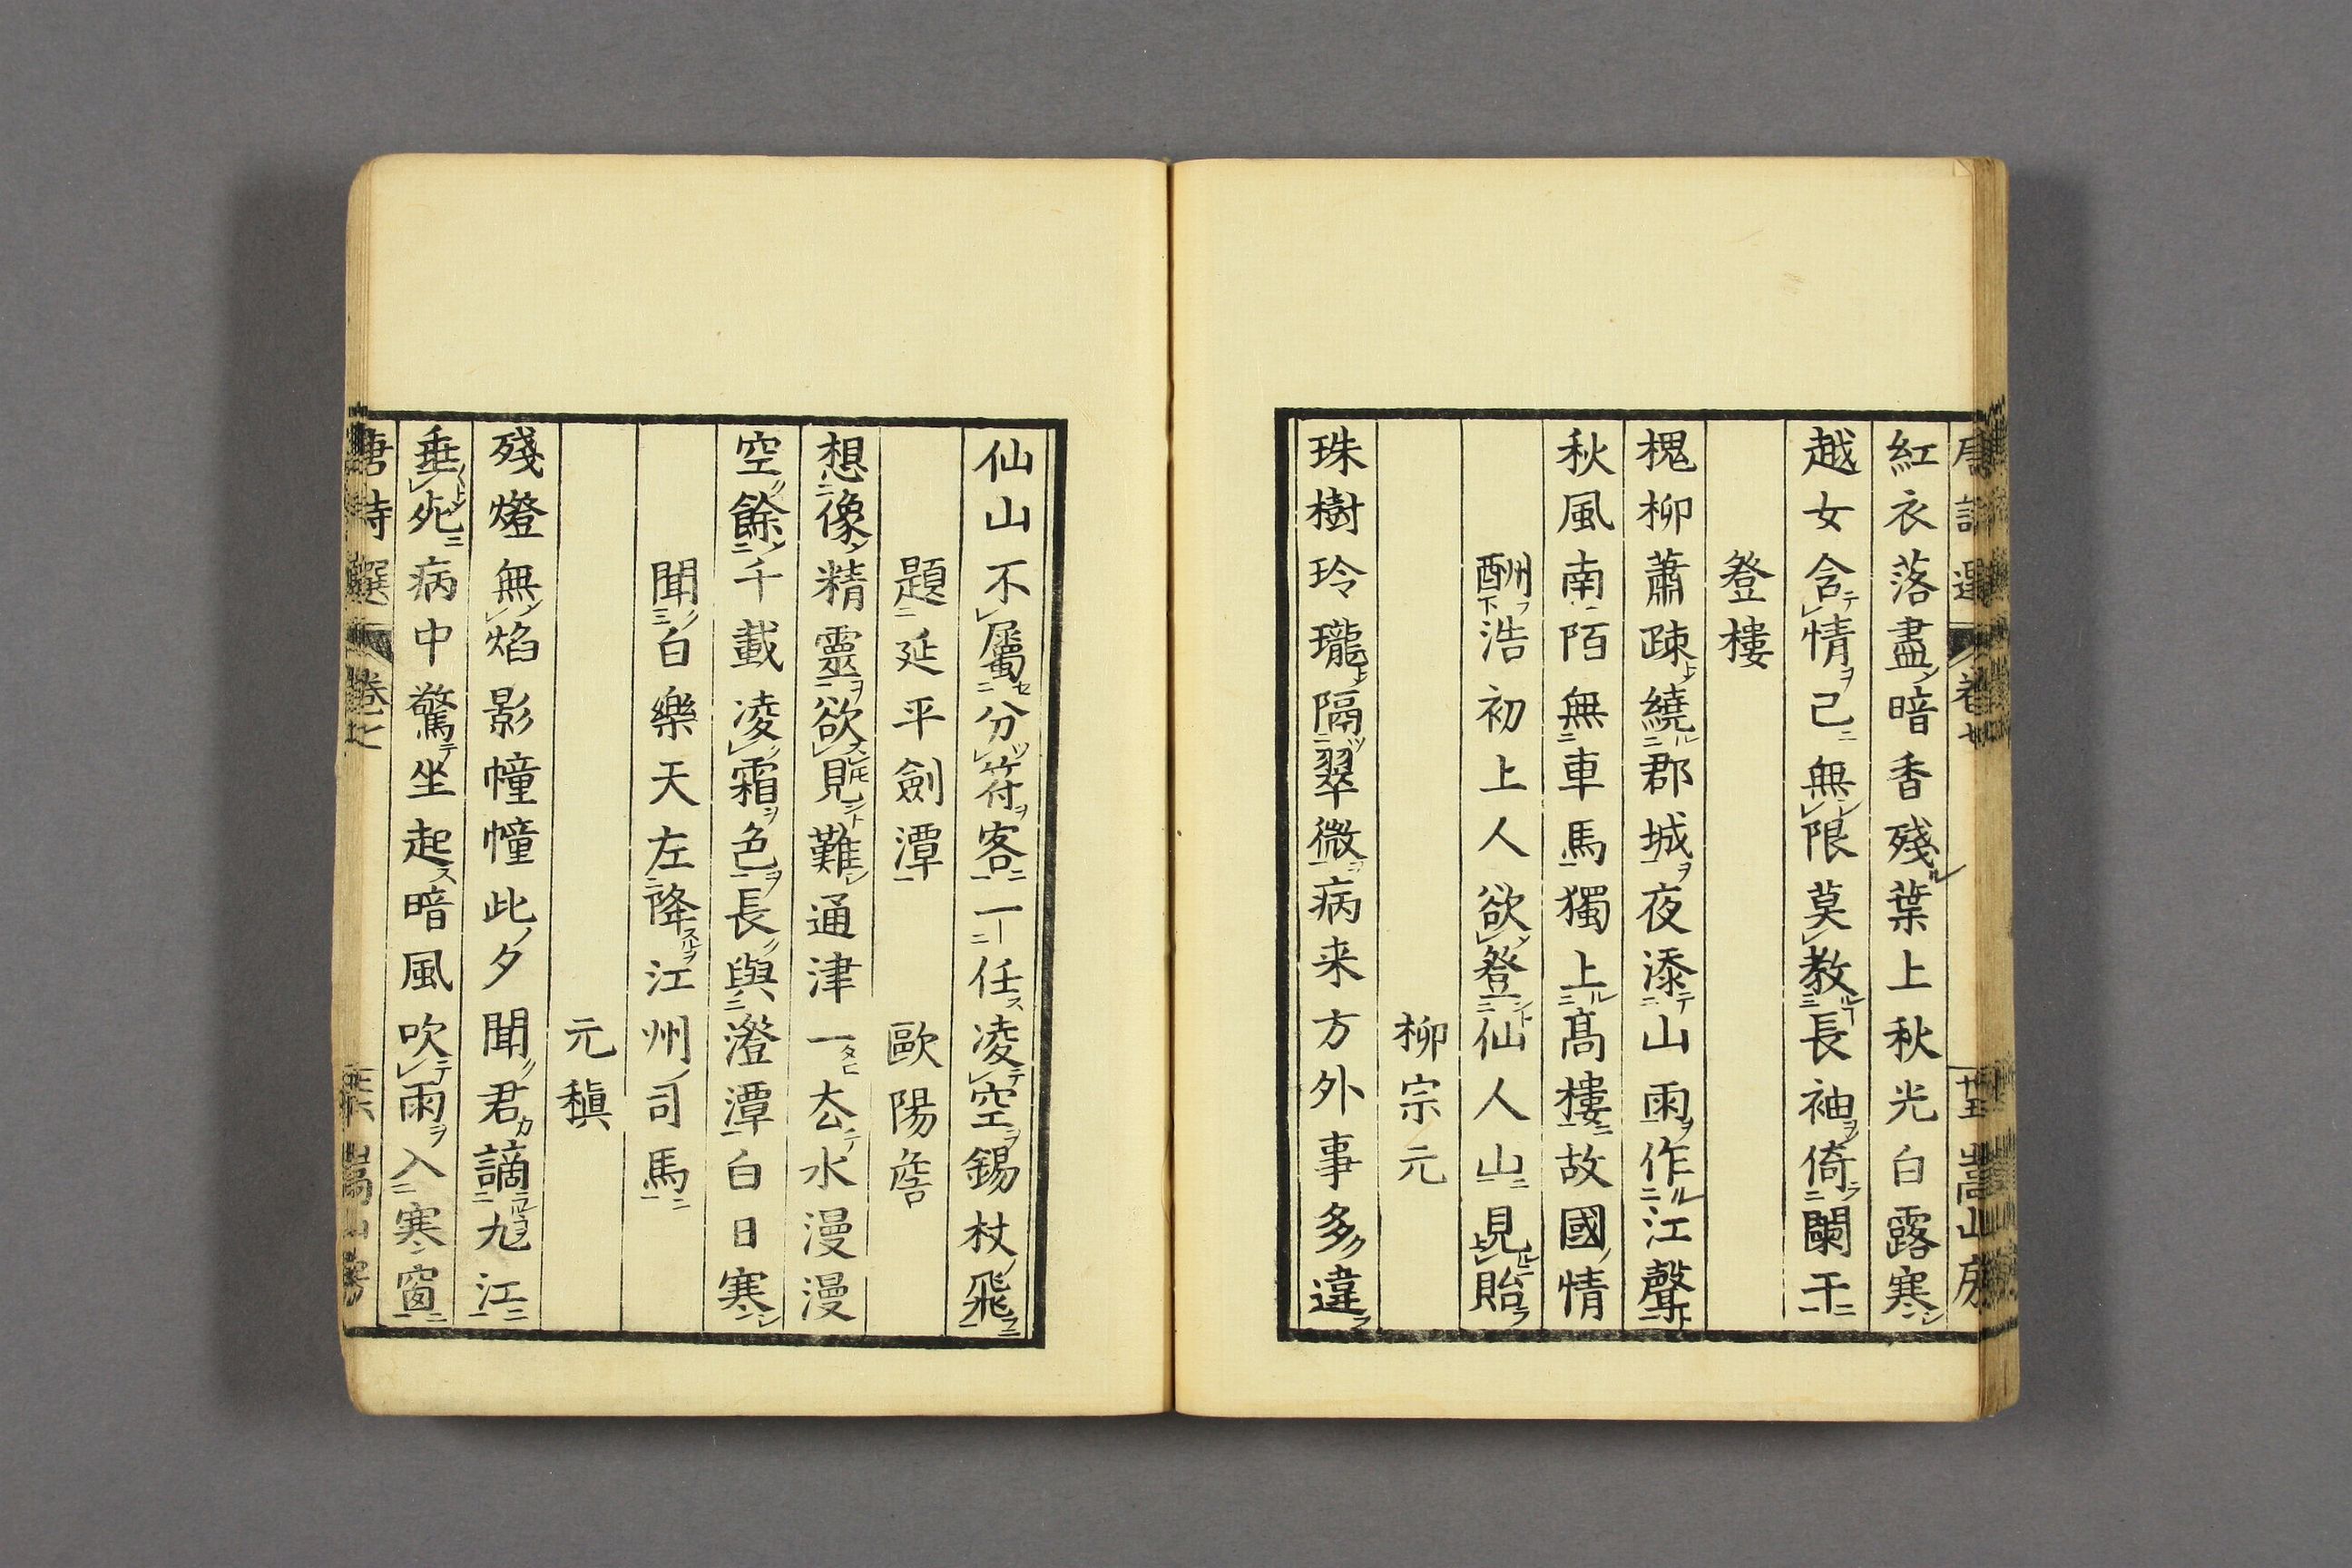 紅衣落盡暗香殘葉上秋光白露寒
越女含情已無限莫教長袖倚闌干
登樓
槐柳蕭疎繞郡城夜添山雨作江聲
秋風南陌無車馬獨上髙樓故國情
酬浩初上人欲登仙人山見貽
柳宗元
珠樹玲瓏隔翠微病来方外事多違
仙山不屬分符客一任凌空錫杖飛
題延平劍潭 歐陽詹
想像精靈欲見難通津一去水漫漫
空餘千載凌霜色長與澄潭白日寒
聞白樂天左降江州司馬
元稹
殘燈無焰影幢幢此夕聞君謫九江
垂死病中驚坐起暗風吹雨入寒窗